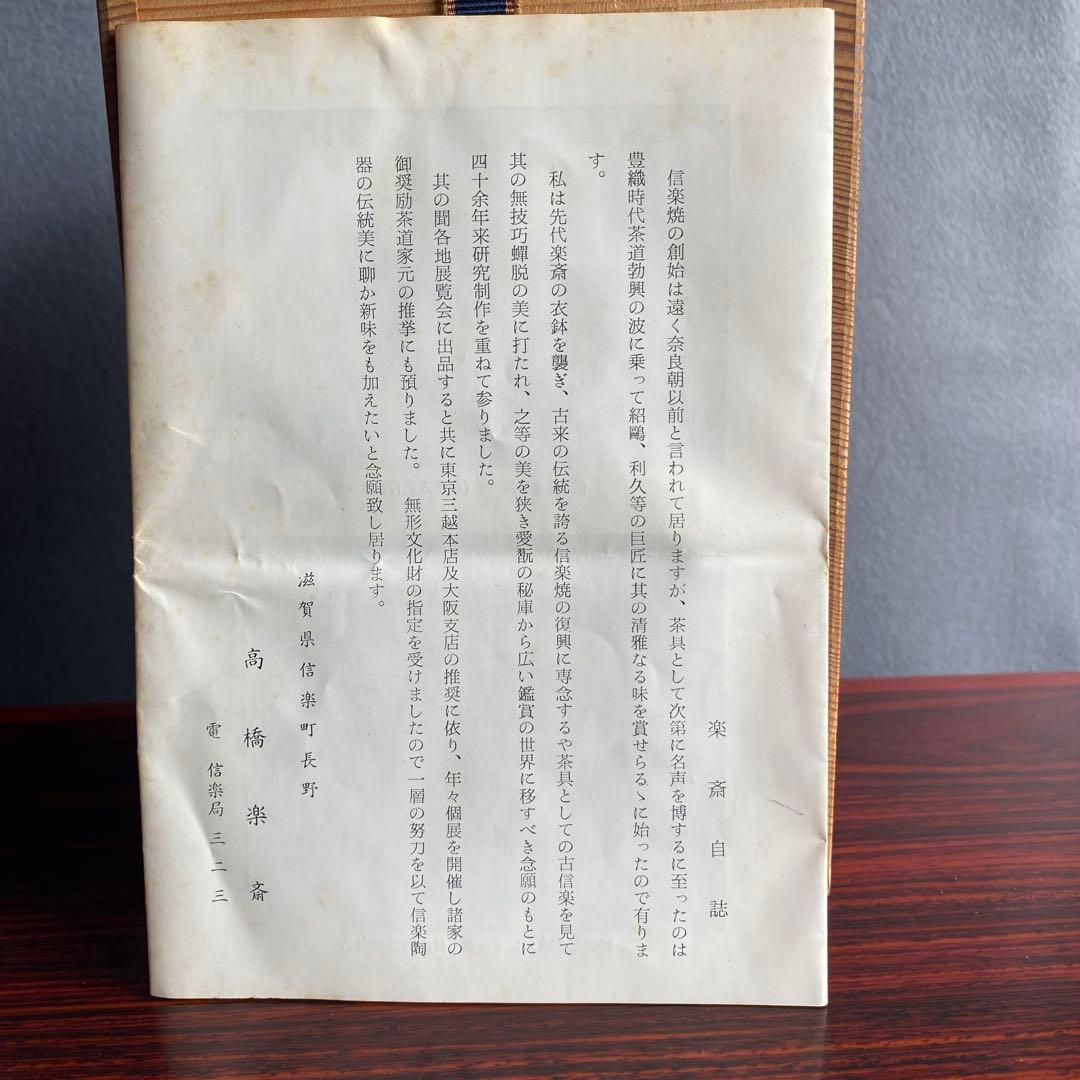 楽斎自誌
信楽焼の創始は遠く奈良朝以前と言われて居りますが、茶具として次第に名声を博するに至ったのは
豊織時代茶道勃興の波に乗って紹鷗、利久等の巨匠に其の清雅なる味を賞せらるゝに始ったので有りま
す。
私は先代楽斎の衣鉢を襲ぎ、古来の伝統を誇る信楽焼の復興に専念するや茶具としての古信楽を見て
其の無技巧蟬脱の美に打たれ、之等の美を狭き愛翫の秘庫から広い鑑賞の世界に移すべき念願のもとに
四十余年来研究制作を重ねて参りました。
其の聞各地展覧会に出品すると共に東京三越本店及大阪支店の推奨に依り、年々個展を開催し諸家の
御奨励茶道家元の推挙にも預りました。　無形文化財の指定を受けましたので一層の努刀を以て信楽陶
器の伝統美に聊か新味をも加えたいと念願致し居ります。
滋賀県信楽町長野
高橋楽斎
電　信楽局三二三